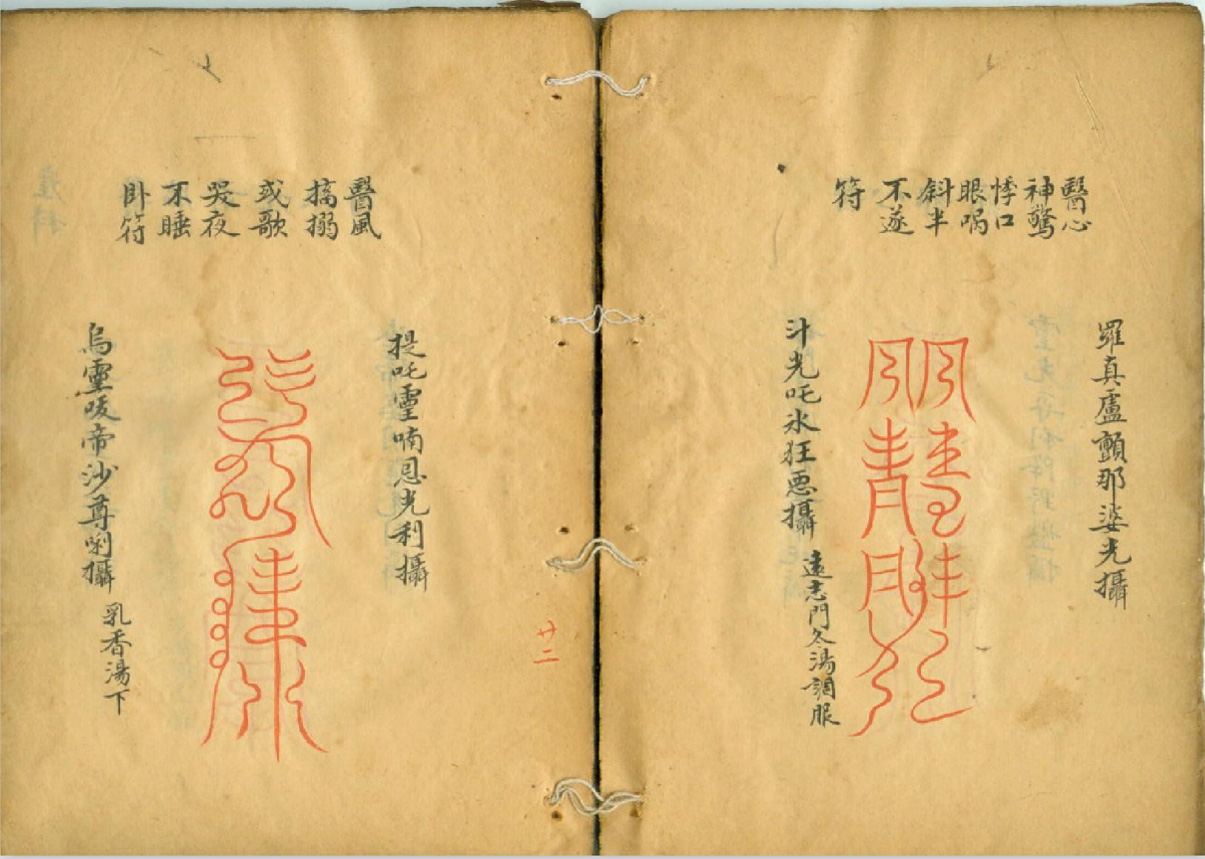 醫心
神驚
悸口
眼喎
斜半
不遂
符
羅真盧顫那婆光攝
斗光吒氷狂惡攝
遠志門冬湯調服
醫風
搐搦
或歌
哭夜
不睡
卧符
提吒靈喃恩光利攝
烏靈㕞帝沙尊唎攝
乳香湯下
廿二